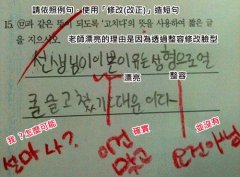 請依照例句，使用「修改(改正)」造短句
15. ㉠과 같은 뜻이 되도록 '고치다'의 뜻을 사용하여 짧은 글
을 지으시오.
老師漂亮的理由是因為透過整修改臉型
선생님이 이쁜 이유는 성형으로 얼
굴을 고쳤기 때문이다
漂亮
整容
我？怎麼可能
確實
並沒有
설마 나?
이건
맞고